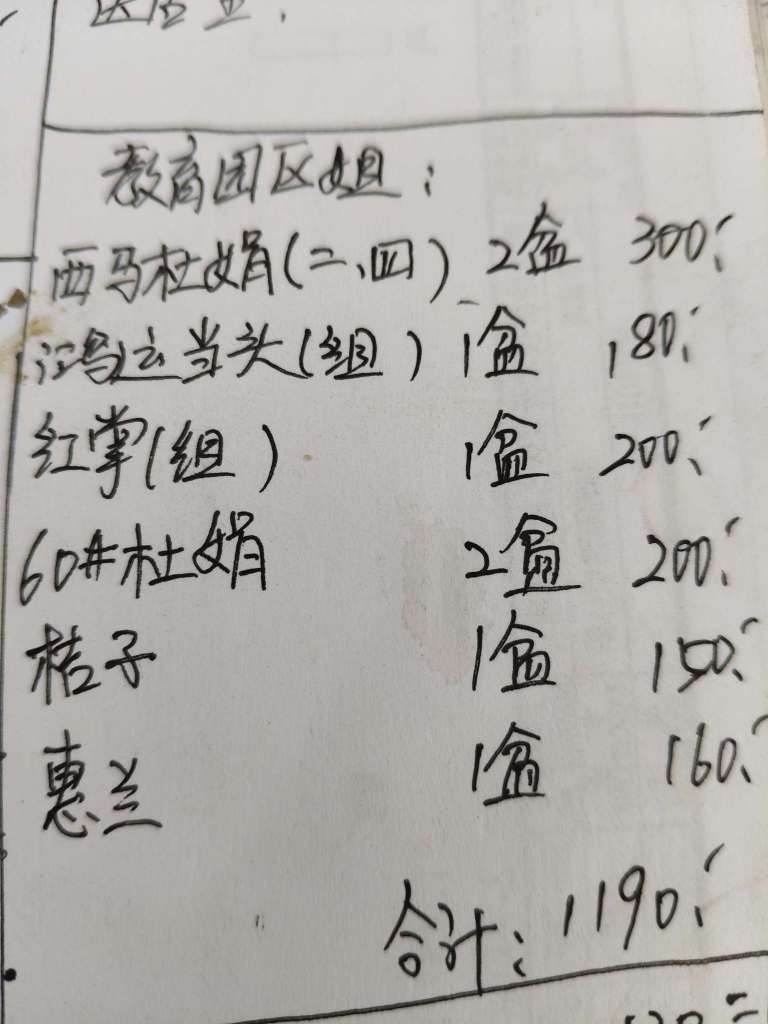 教育园区姐：
西马杜娟(二、四) 2盆 300.-
鸿运当头(组) 1盆 180.-
红掌(组) 1盆 200.-
60#杜娟 2盆 200.-
桔子 1盆 150.-
惠兰 1盆 160.-
合计：1190.-